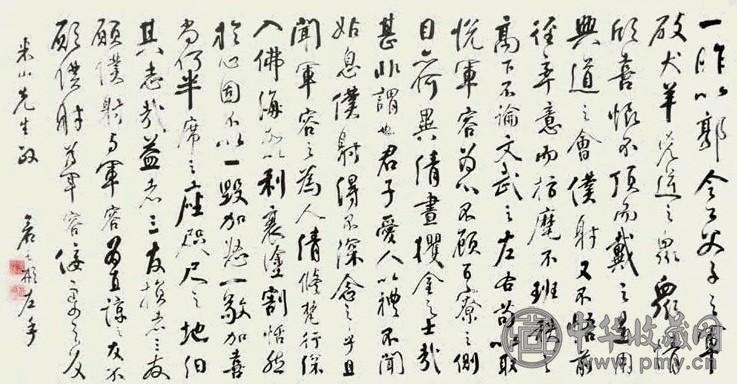 一昨以郭令公父子之軍
破犬羊兇逆之衆衆情
欣喜恨不頂而戴之是用
興道之會僕射又不悟前
徑率意而指麾不班秩之
高下不論文武之左右苟以取
悅軍容為心不顧百寮之側
目亦何異清晝攫金之士哉
甚非謂也君子愛人以禮不聞
姑息僕射得不深念之乎且
聞軍容之為人清修梵行深
入佛海加以利衰塗割恬然
於心固不以一毀加怒一敬加喜
尚何半席之座咫尺之地汩
其志哉益者三友損者三友
願僕射與軍容為直諒之友不
願僕射為軍容佞柔之友
米山先生政
左手
中华收藏网
www.pmv.cn